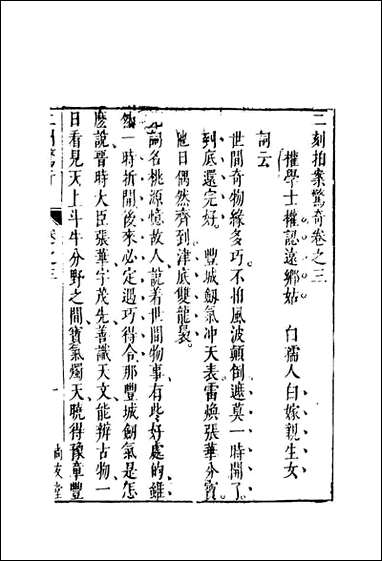 二刻拍案驚奇卷之三
權學士權認遠鄉姑　白孺人白嫁親生女
詞云
世間奇物緣多巧。不怕風波顛倒。遮莫一時開了。
到底還完好。　豐城劔氣冲天表。雷煥張華分寶。
他日偶然齊到。津底雙龍裊。
詞名桃源憶故人。說着世間物事有些好處的。雖
然一時拆開。後來必定遇巧得合。那豐城劔氣是怎
麽說。晉時大臣張華字茂先。善識天文。能辨古物。一
日看見天上斗牛分野之間。寶氣燭天。曉得豫章豐
二刻驚奇
卷之三
一
尚友堂